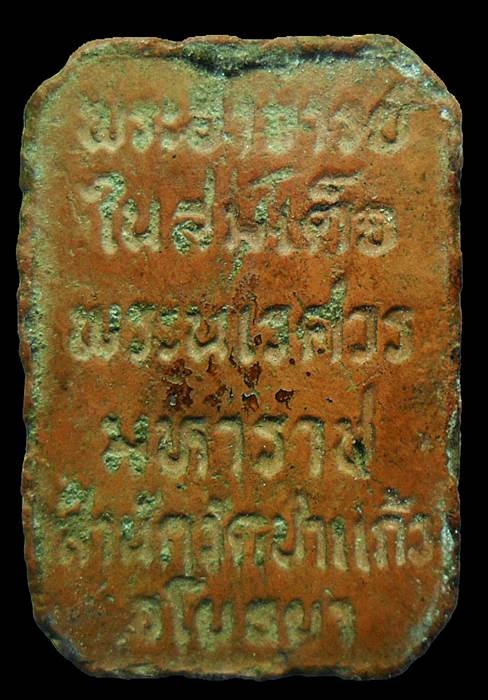 พระอาจารย์
ในสมเด็จ
พระนเรศวร
มหาราช
สำนักวัดป่าแก้ว
อโยธยา